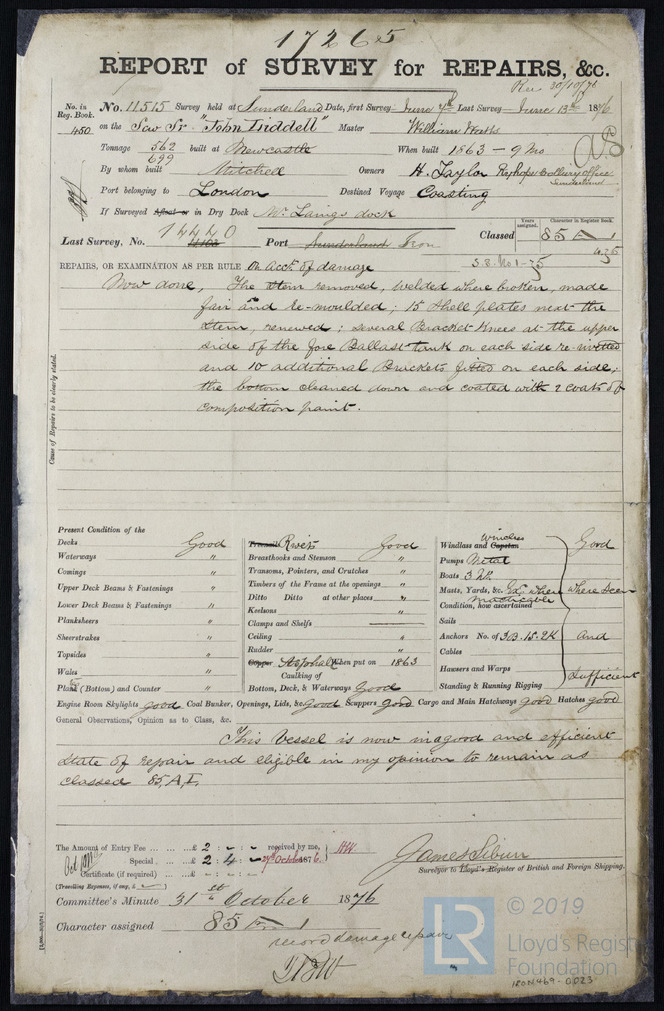 17265
REPORT of SURVEY for REPAIRS, &c.
Rec 30/10/76
No. in Reg. Book. No. 11515 Survey held at Sunderland Date, first Survey June 7th Last Survey June 13th 1876
450 on the Scw Sr "John Liddell" Master William Watts
Tonnage 562 built at Newcastle When built 1863 - 9 mo
699
By whom built Mitchell Owners H. Taylor Ryhope Colliery Office Sunderland
Port belonging to London Destined Voyage Coasting
If Surveyed Afloat or in Dry Dock Mr Laings dock
14440
Last Survey, No. Port Sunderland Iron Classed
Years assigned. Character in Register Book.
85 A 1
4,75
REPAIRS, OR EXAMINATION AS PER RULE On Acct. of damage S.S. No 1-75
Now done, The Stem removed, welded where broken, made
fair and re-moulded; 15 Shell plates next the
Stem, renewed; several Bracket Knees at the upper
side of the fore Ballast tank on each side re-rivetted
and 10 additional Brackets fitted on each side;
the bottom cleaned down and coated with 2 coats of
composition paint.
Cause of Repairs to be clearly stated.
Present Condition of the
Decks Good
Waterways "
Comings "
Upper Deck Beams & Fastenings "
Lower Deck Beams & Fastenings "
Planksheers "
Sheerstrakes "
Topsides "
Wales "
Plank (Bottom) and Counter "
Treenails Rivets Good
Breasthooks and Stemson "
Transoms, Pointers, and Crutches "
Timbers of the Frame at the openings "
Ditto Ditto at other places "
Keelsons "
Clamps and Shelfs
Ceiling "
Rudder "
Copper Asphalt When put on 1863
Caulking of
Bottom, Deck, & Waterways Good
Windlass and Capstan Winches Good
Pumps Metal
Boats 3
Masts, Yards, &c. Exd where where seen
Condition, how ascertained practicable
Sails
Anchors No. of 3B. 1S. 2K and
Cables
Hawsers and Warps Sufficient
Standing & Running Rigging
Engine Room Skylights good Coal Bunker, Openings, Lids, &c. Good Scuppers Good Cargo and Main Hatchways Good Hatches good
General Observations, Opinion as to Class, &c.
This Vessel is now in a good and efficient
state of repair and eligible in my opinion to remain as
classed 85, A, I.
The Amount of Entry Fee ... £ 2 : - : - received by me,
Special ... £ 2 : 4 : - 27th October 1876.
Certificate (if required) ...
(Travelling Expenses, if any, £ )
James Sibun
Surveyor to Lloyd's Register of British and Foreign Shipping.
Committee's Minute 31st October 1876
Character assigned 85 A 1
record damage repairs
© 2019
LR
Lloyd's Register
Foundation
IRON469-0023